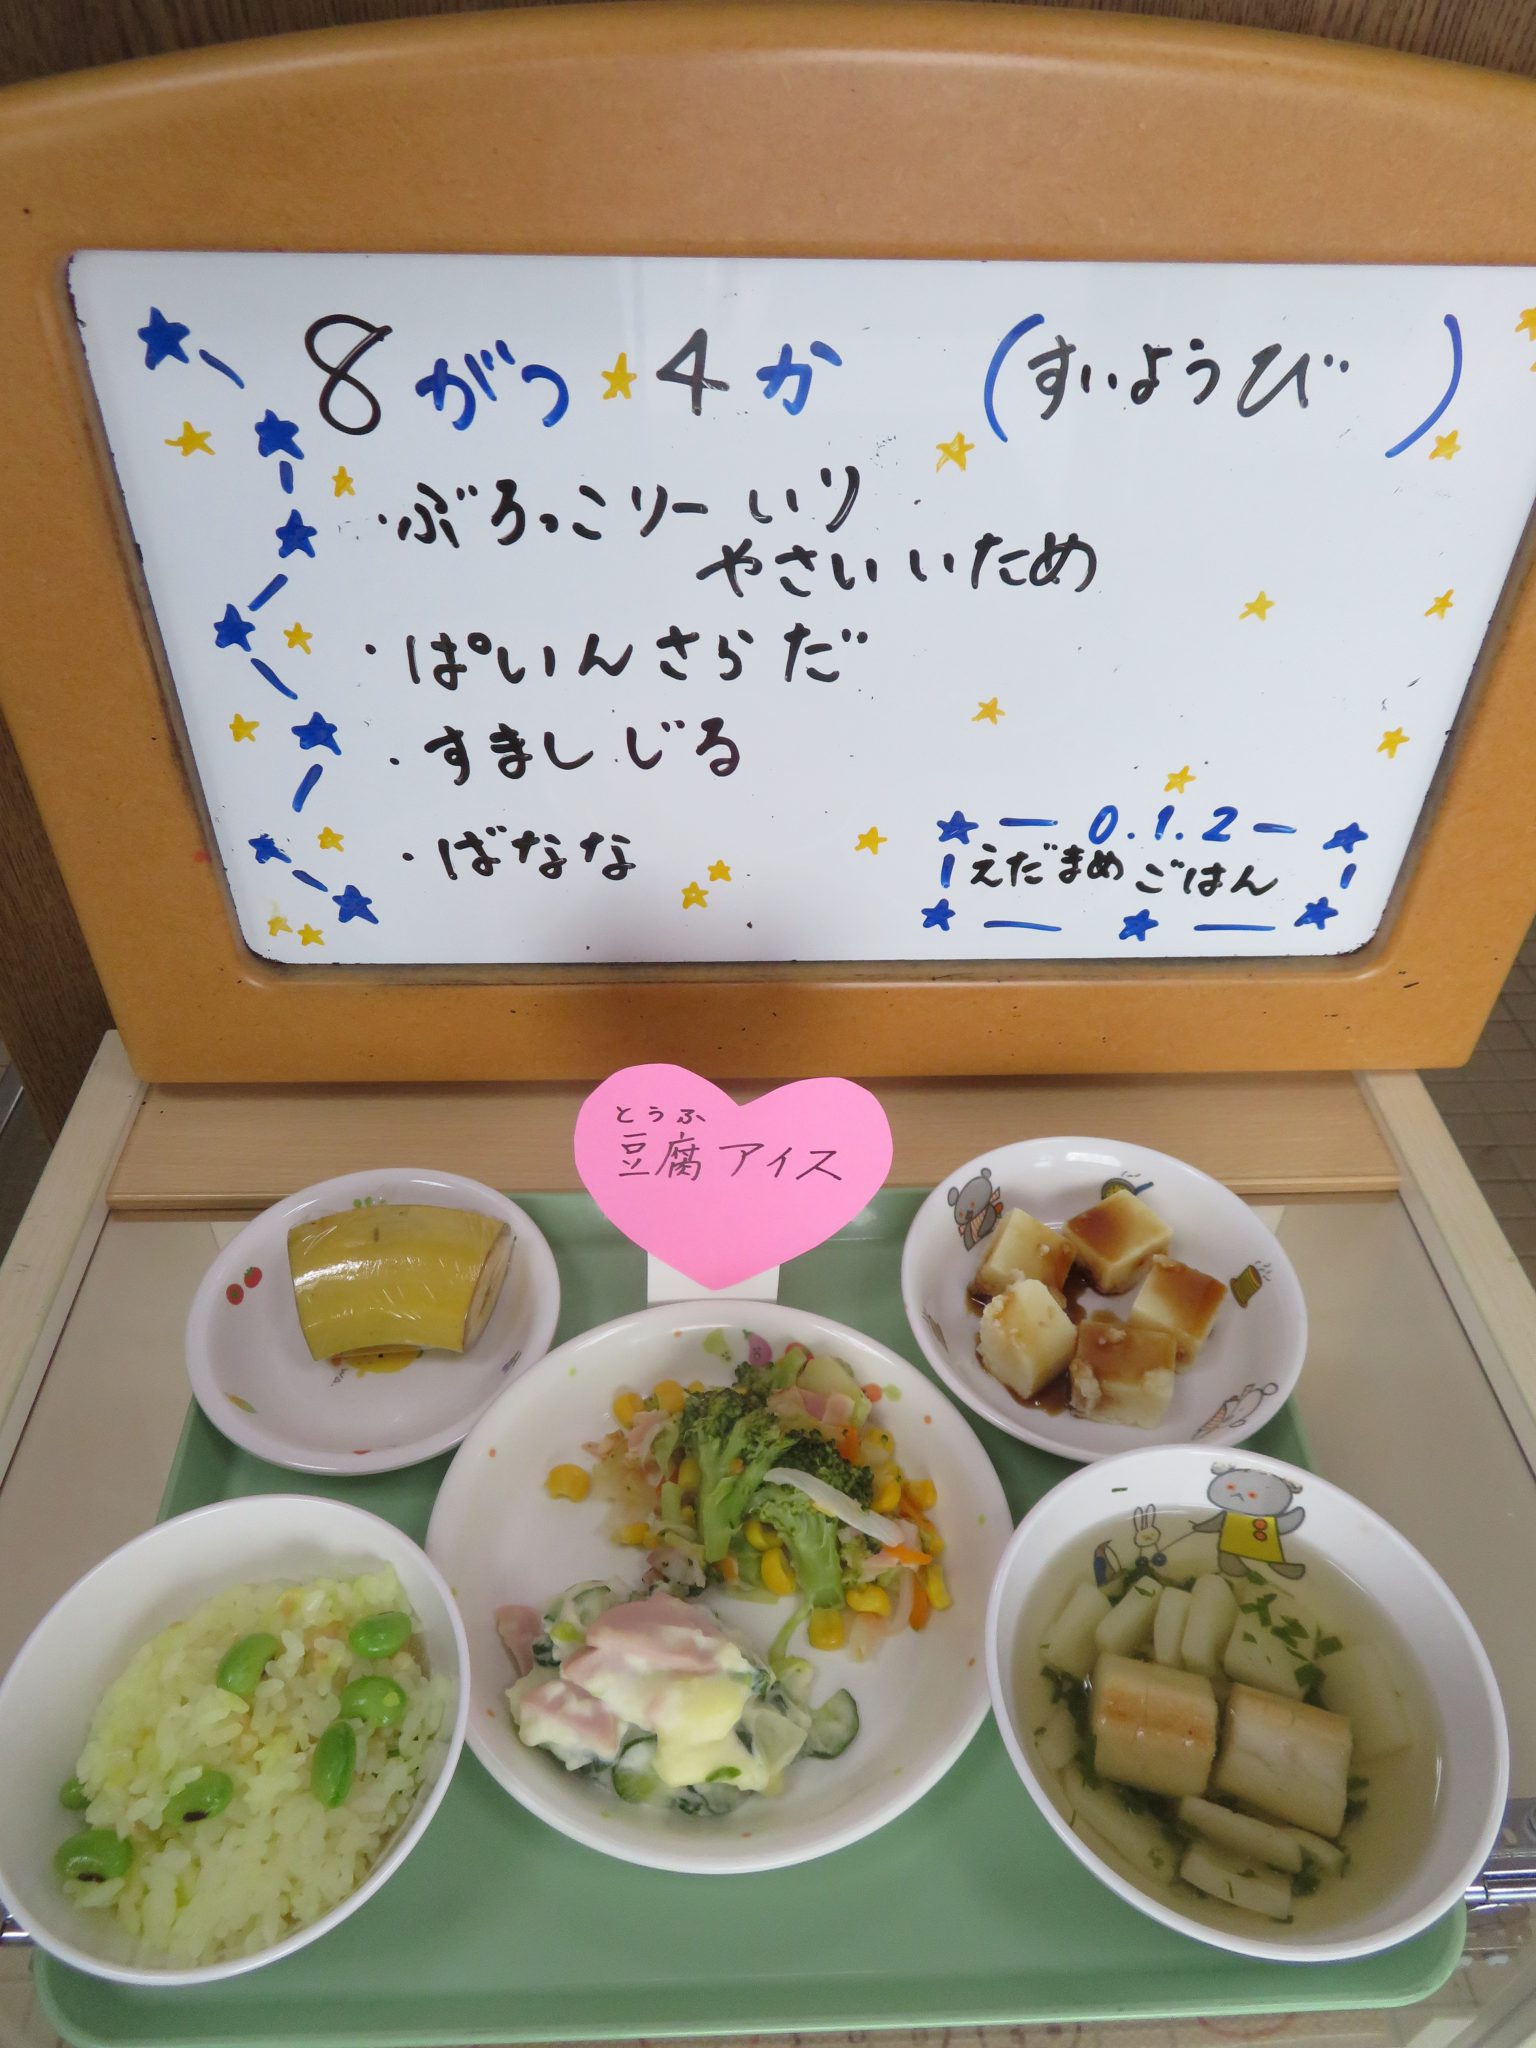 8がつ4か (すいようび)
・ぶろっこりーいり
やさいいため
・ぱいんさらだ
・すましじる
・ばなな
0.1.2
えだまめごはん
とうふ
豆腐アイス